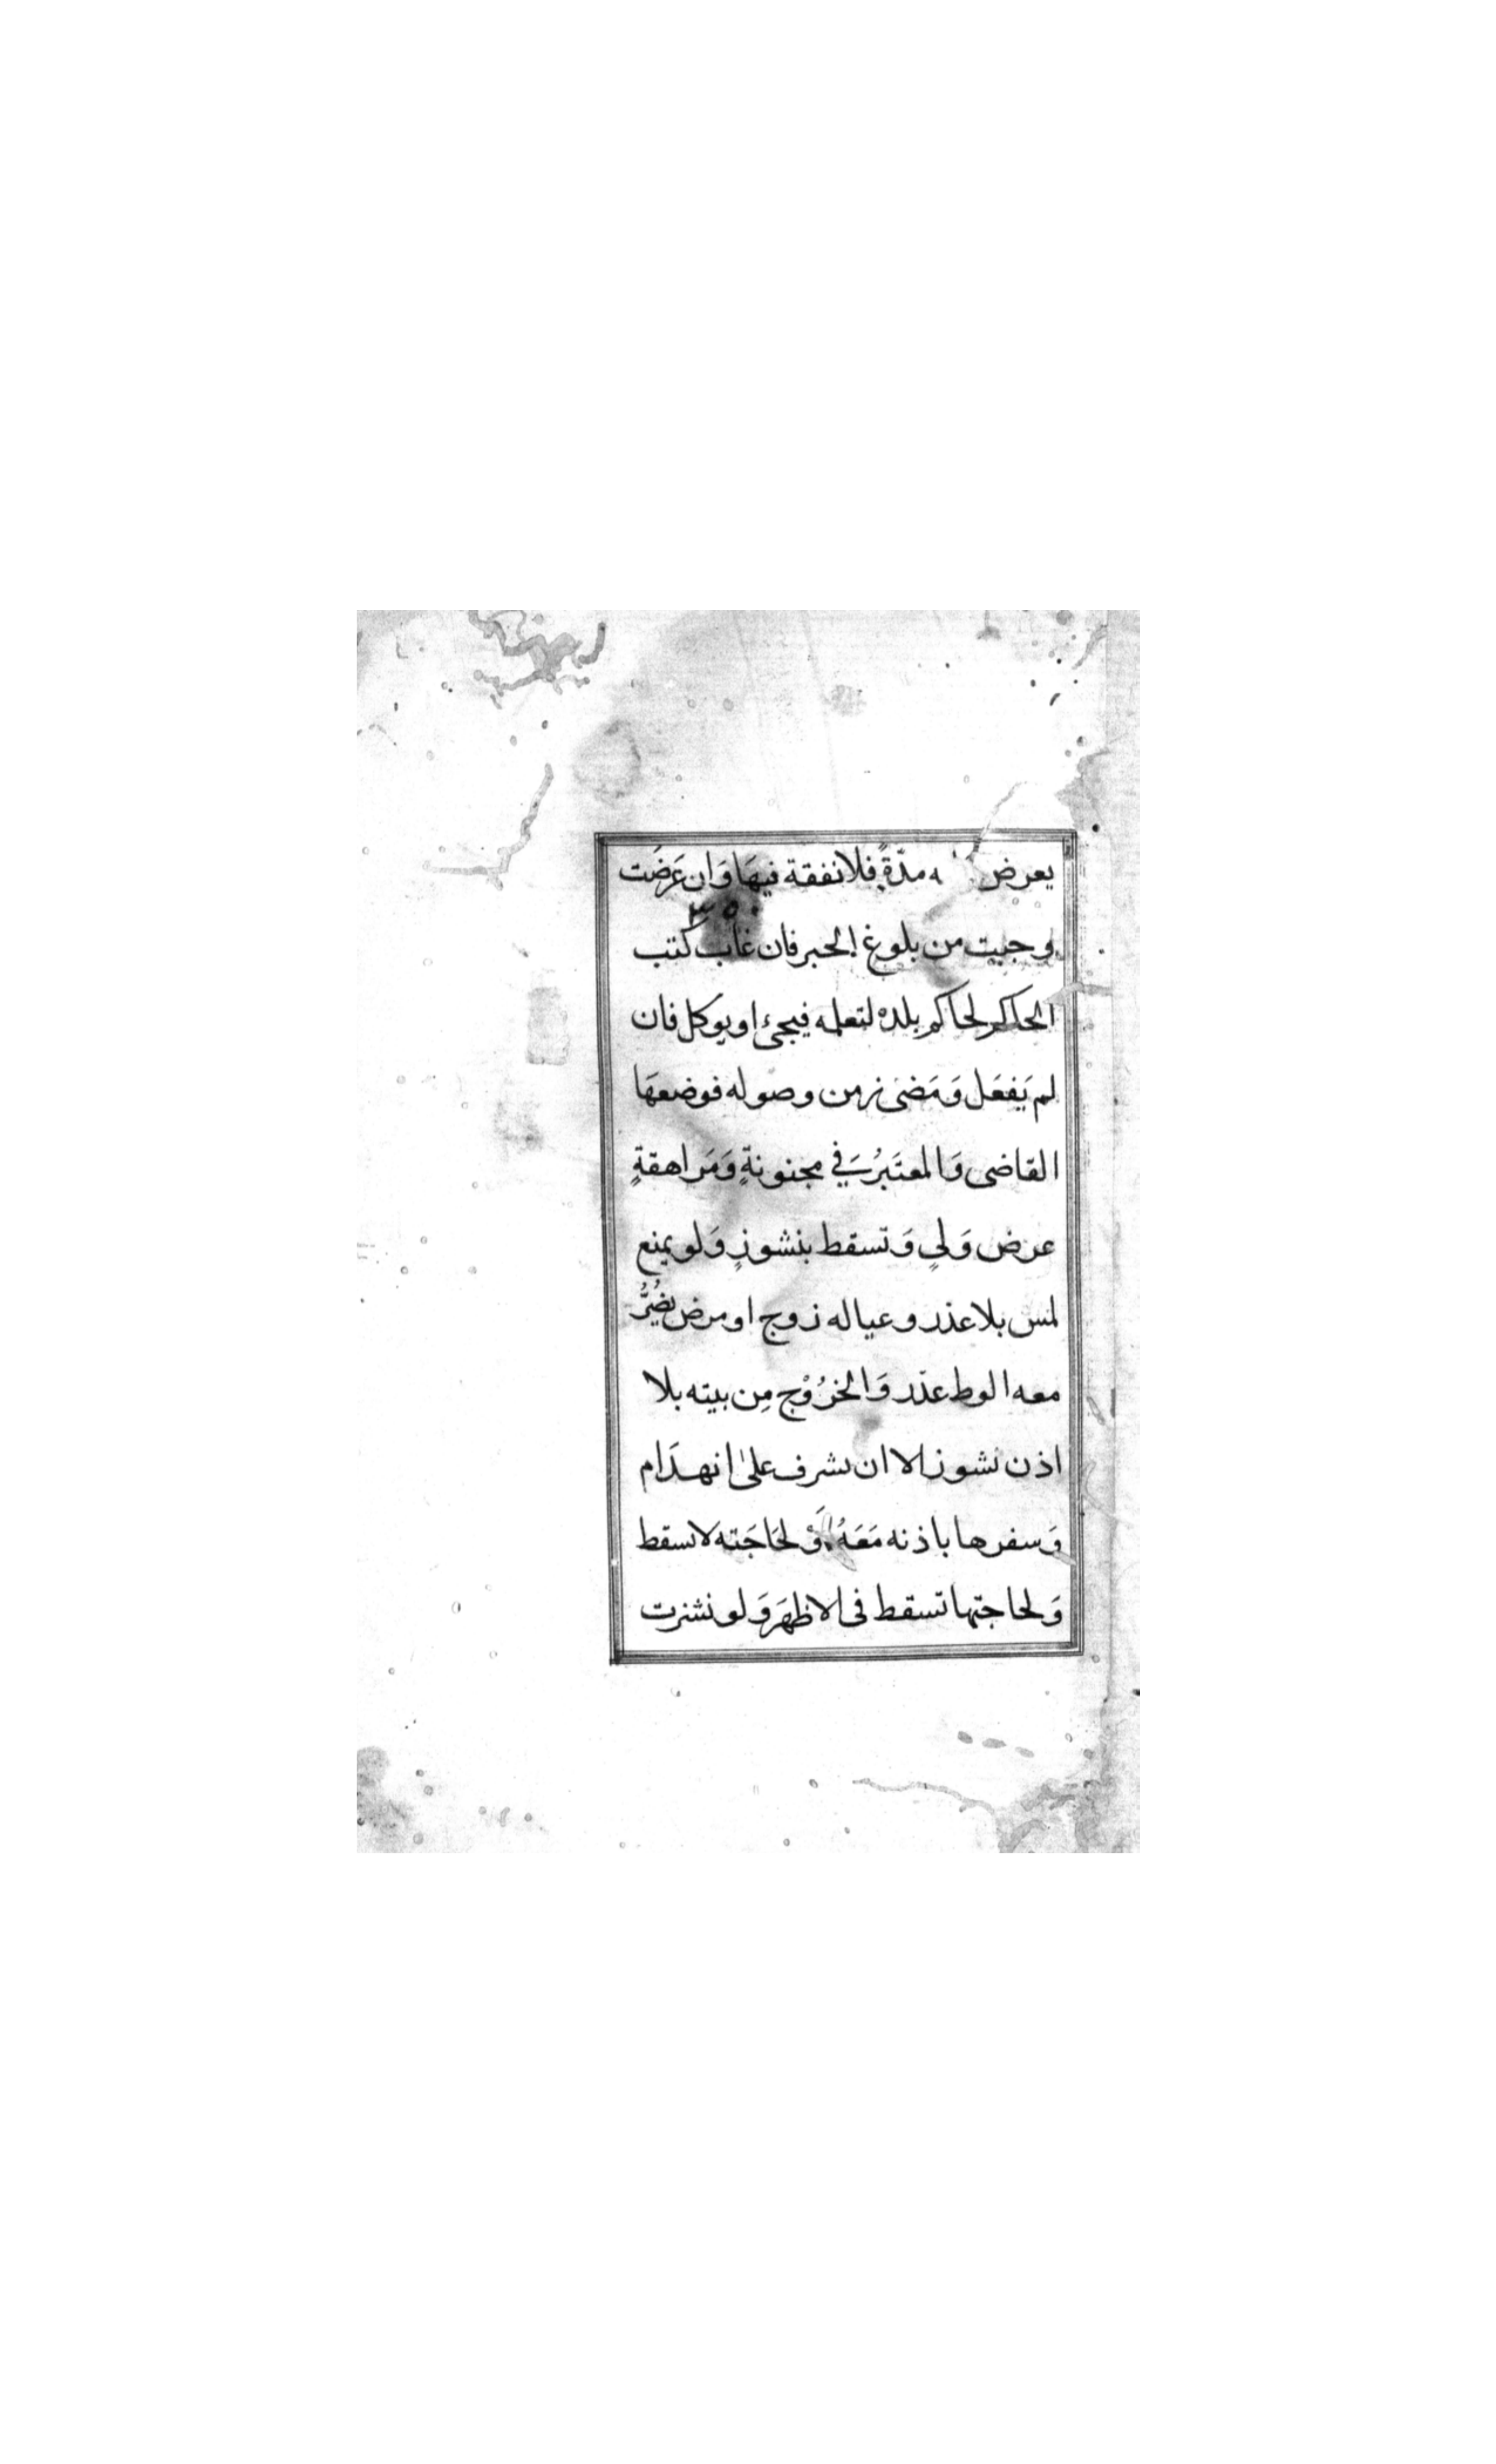 يعرض ه مدّةً فلا نفقة فيهَا وَان عَرضَت
وجبت من بلوغ الخبر فان غاب كتب
الحاكم لحاكم بلده لتعلمه فيجئ او يوكل فان
لم يَفعَل وَمَضىٰ زمن وصوله فوضعهَا
القاضى وَالمعتَبرُ في مجنونةٍ وَمَراهقةٍ
عرض وَليٍ وَتسقط بنشوزٍ وَلو بمنع
لمس بلا عذر وعياله زوج او مرض يضُرُّ
معه الوط عذر وَالخرُوْج مِن بيته بلا
اذن نشوز الا ان يشرف علىٰ انهدَام
وَسفرها باذنه مَعَهُ اَوْ لحَاجَته لا يسقط
وَلحاجتها تسقط فى الاظهَر وَلو نشزت